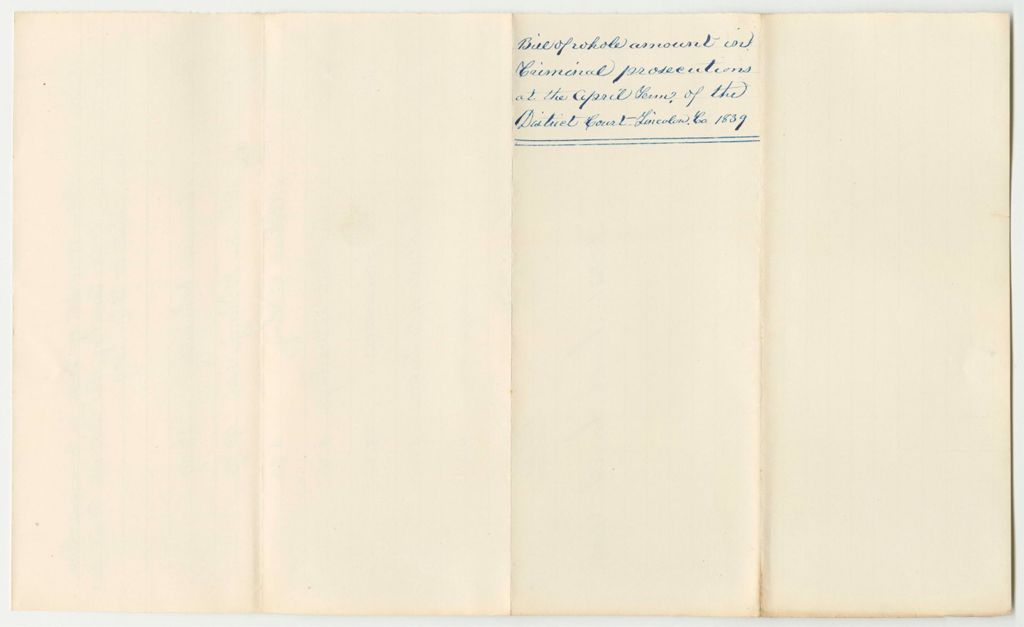 Bill of whole amount in
Criminal prosecutions
at the April Term, of the
District Court Lincoln, Co 1839